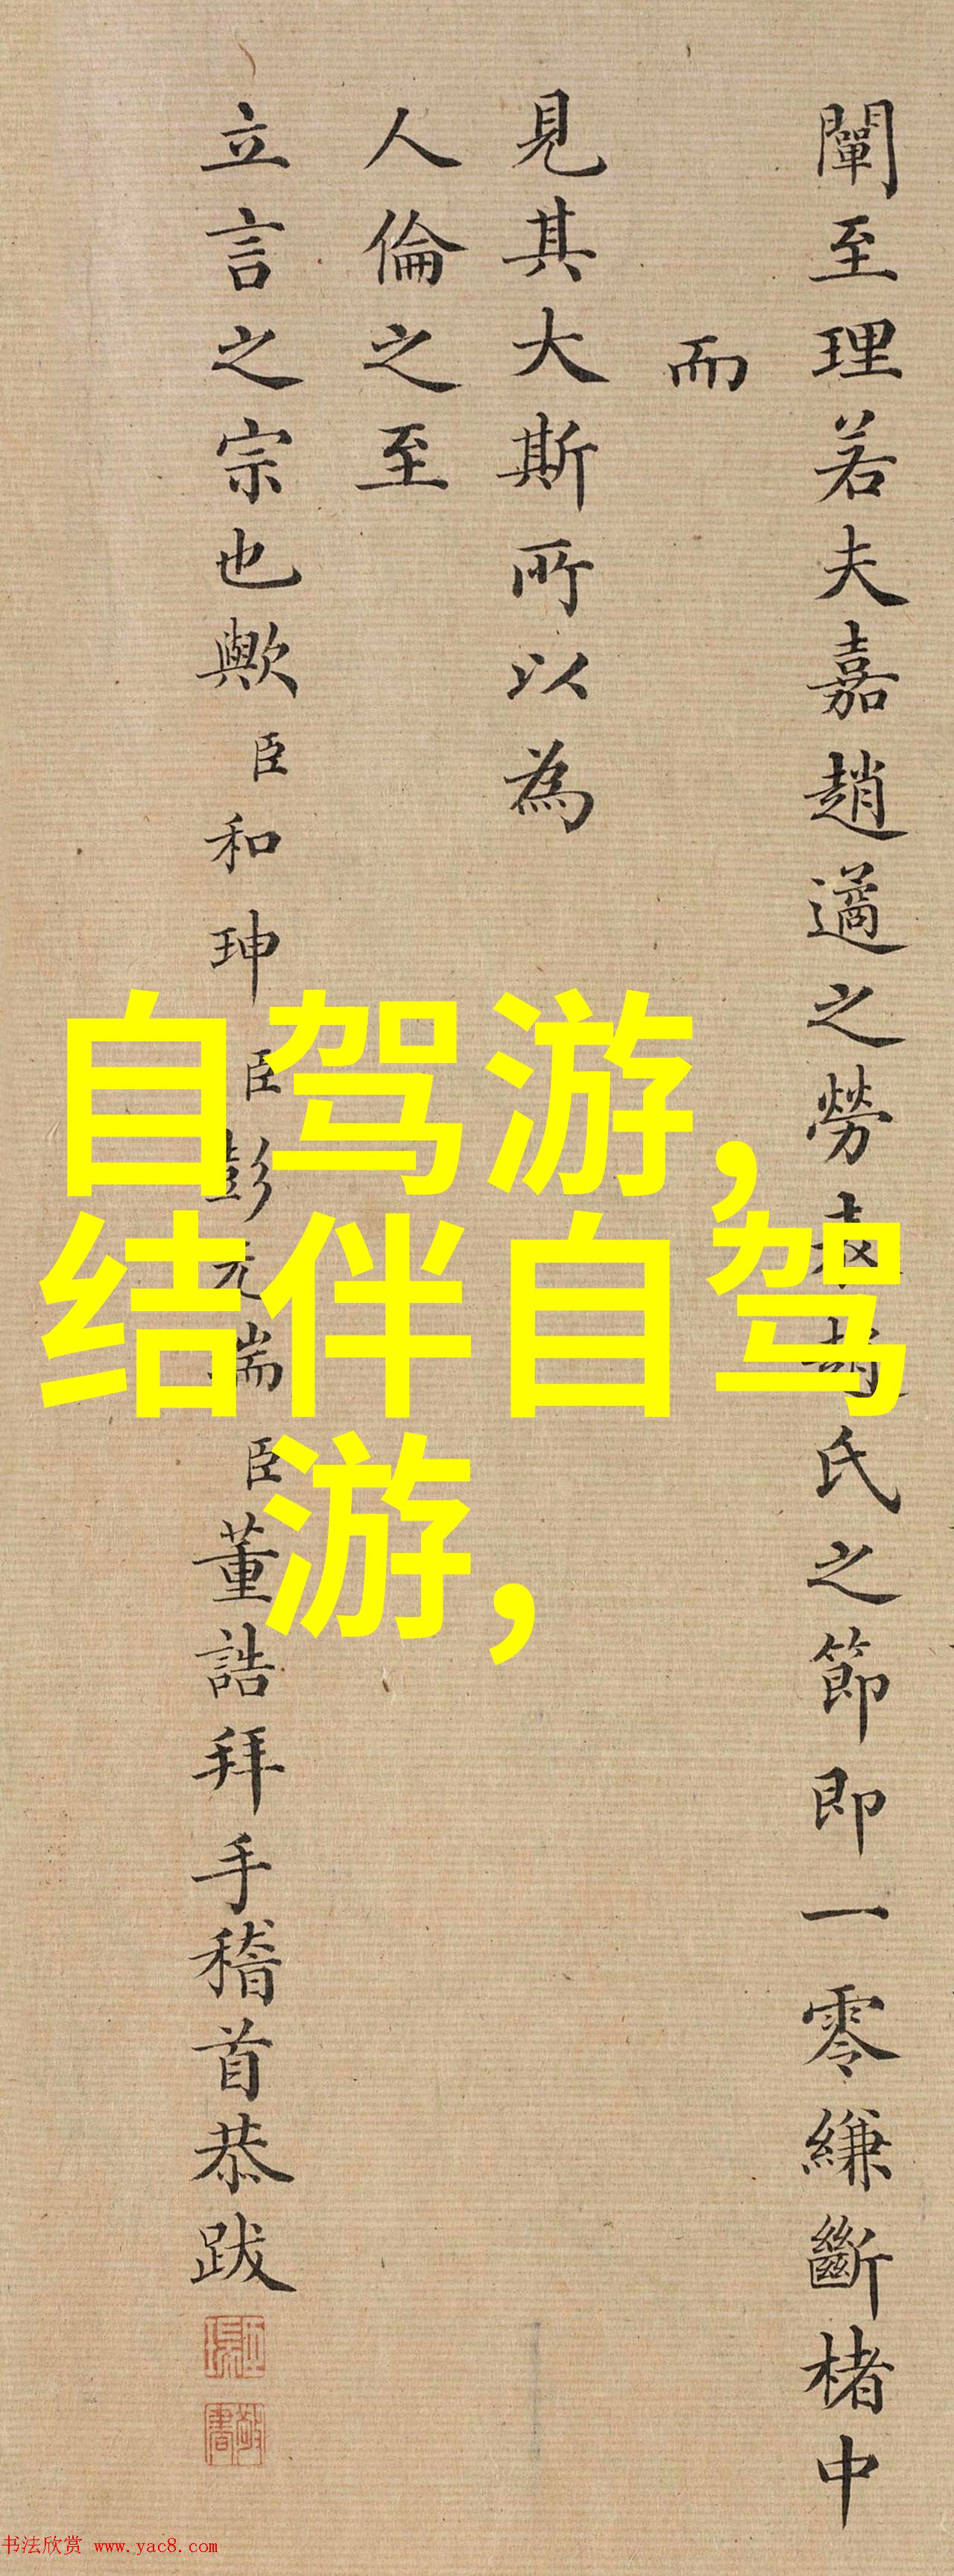 闡至理若夫嘉趙邁之勞表趙氏之節即一零縑斷楮中
而
見其大斯所以為
人倫之至
立言之宗也歟臣和珅臣彭元瑞臣董誥拜手稽首恭跋
自驾游,
结伴自驾
游,
书法欣赏 www.yac8.com